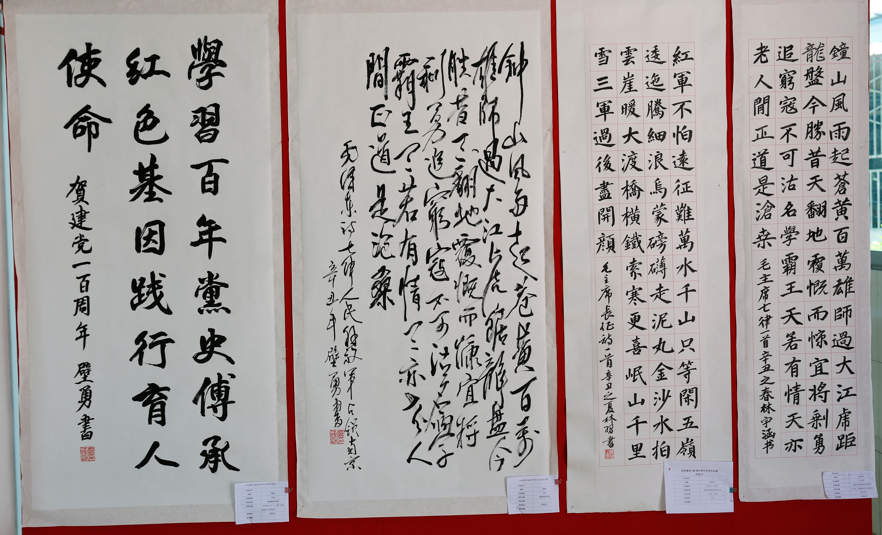 學習百年黨史傳承
紅色基因践行育人
使命
贺建党一百周年 壁勇書
钟山风雨起苍黄百万
雄师过大江虎踞龍盘今
胜昔天翻地覆慨而慷宜将
剩勇追窮寇不可沽名學
霸王天若有情天亦老人
間正道是滄桑
毛泽东诗七律人民解放军占领南京
辛丑年壁勇書
紅軍不怕遠征難萬水千山只等閑五嶺
逶迤騰細浪烏蒙磅礴走泥丸金沙水拍
雲崖暖大渡橋橫鐵索寒更喜岷山千里
雪三軍過後盡開顏 毛主席長征詩一首辛丑之夏林書
鐘山風雨起蒼黃百萬雄師過大江虎距
龍盤今勝昔天翻地覆慨而慷宜將剩勇
追窮寇不可沽名學霸王天若有情天亦
老人間正道是滄桑 毛主席七律一首辛丑之春林宇涵书